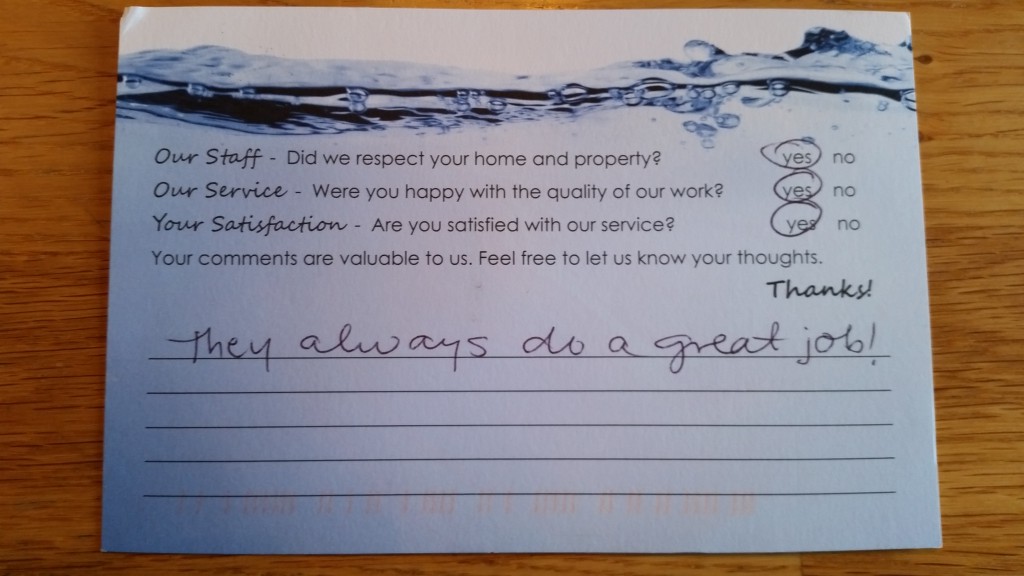 Our Staff - Did we respect your home and property? yes no
Our Service - Were you happy with the quality of our work? yes no
Your Satisfaction - Are you satisfied with our service? yes no
Your comments are valuable to us. Feel free to let us know your thoughts.
Thanks!
They always do a great job!